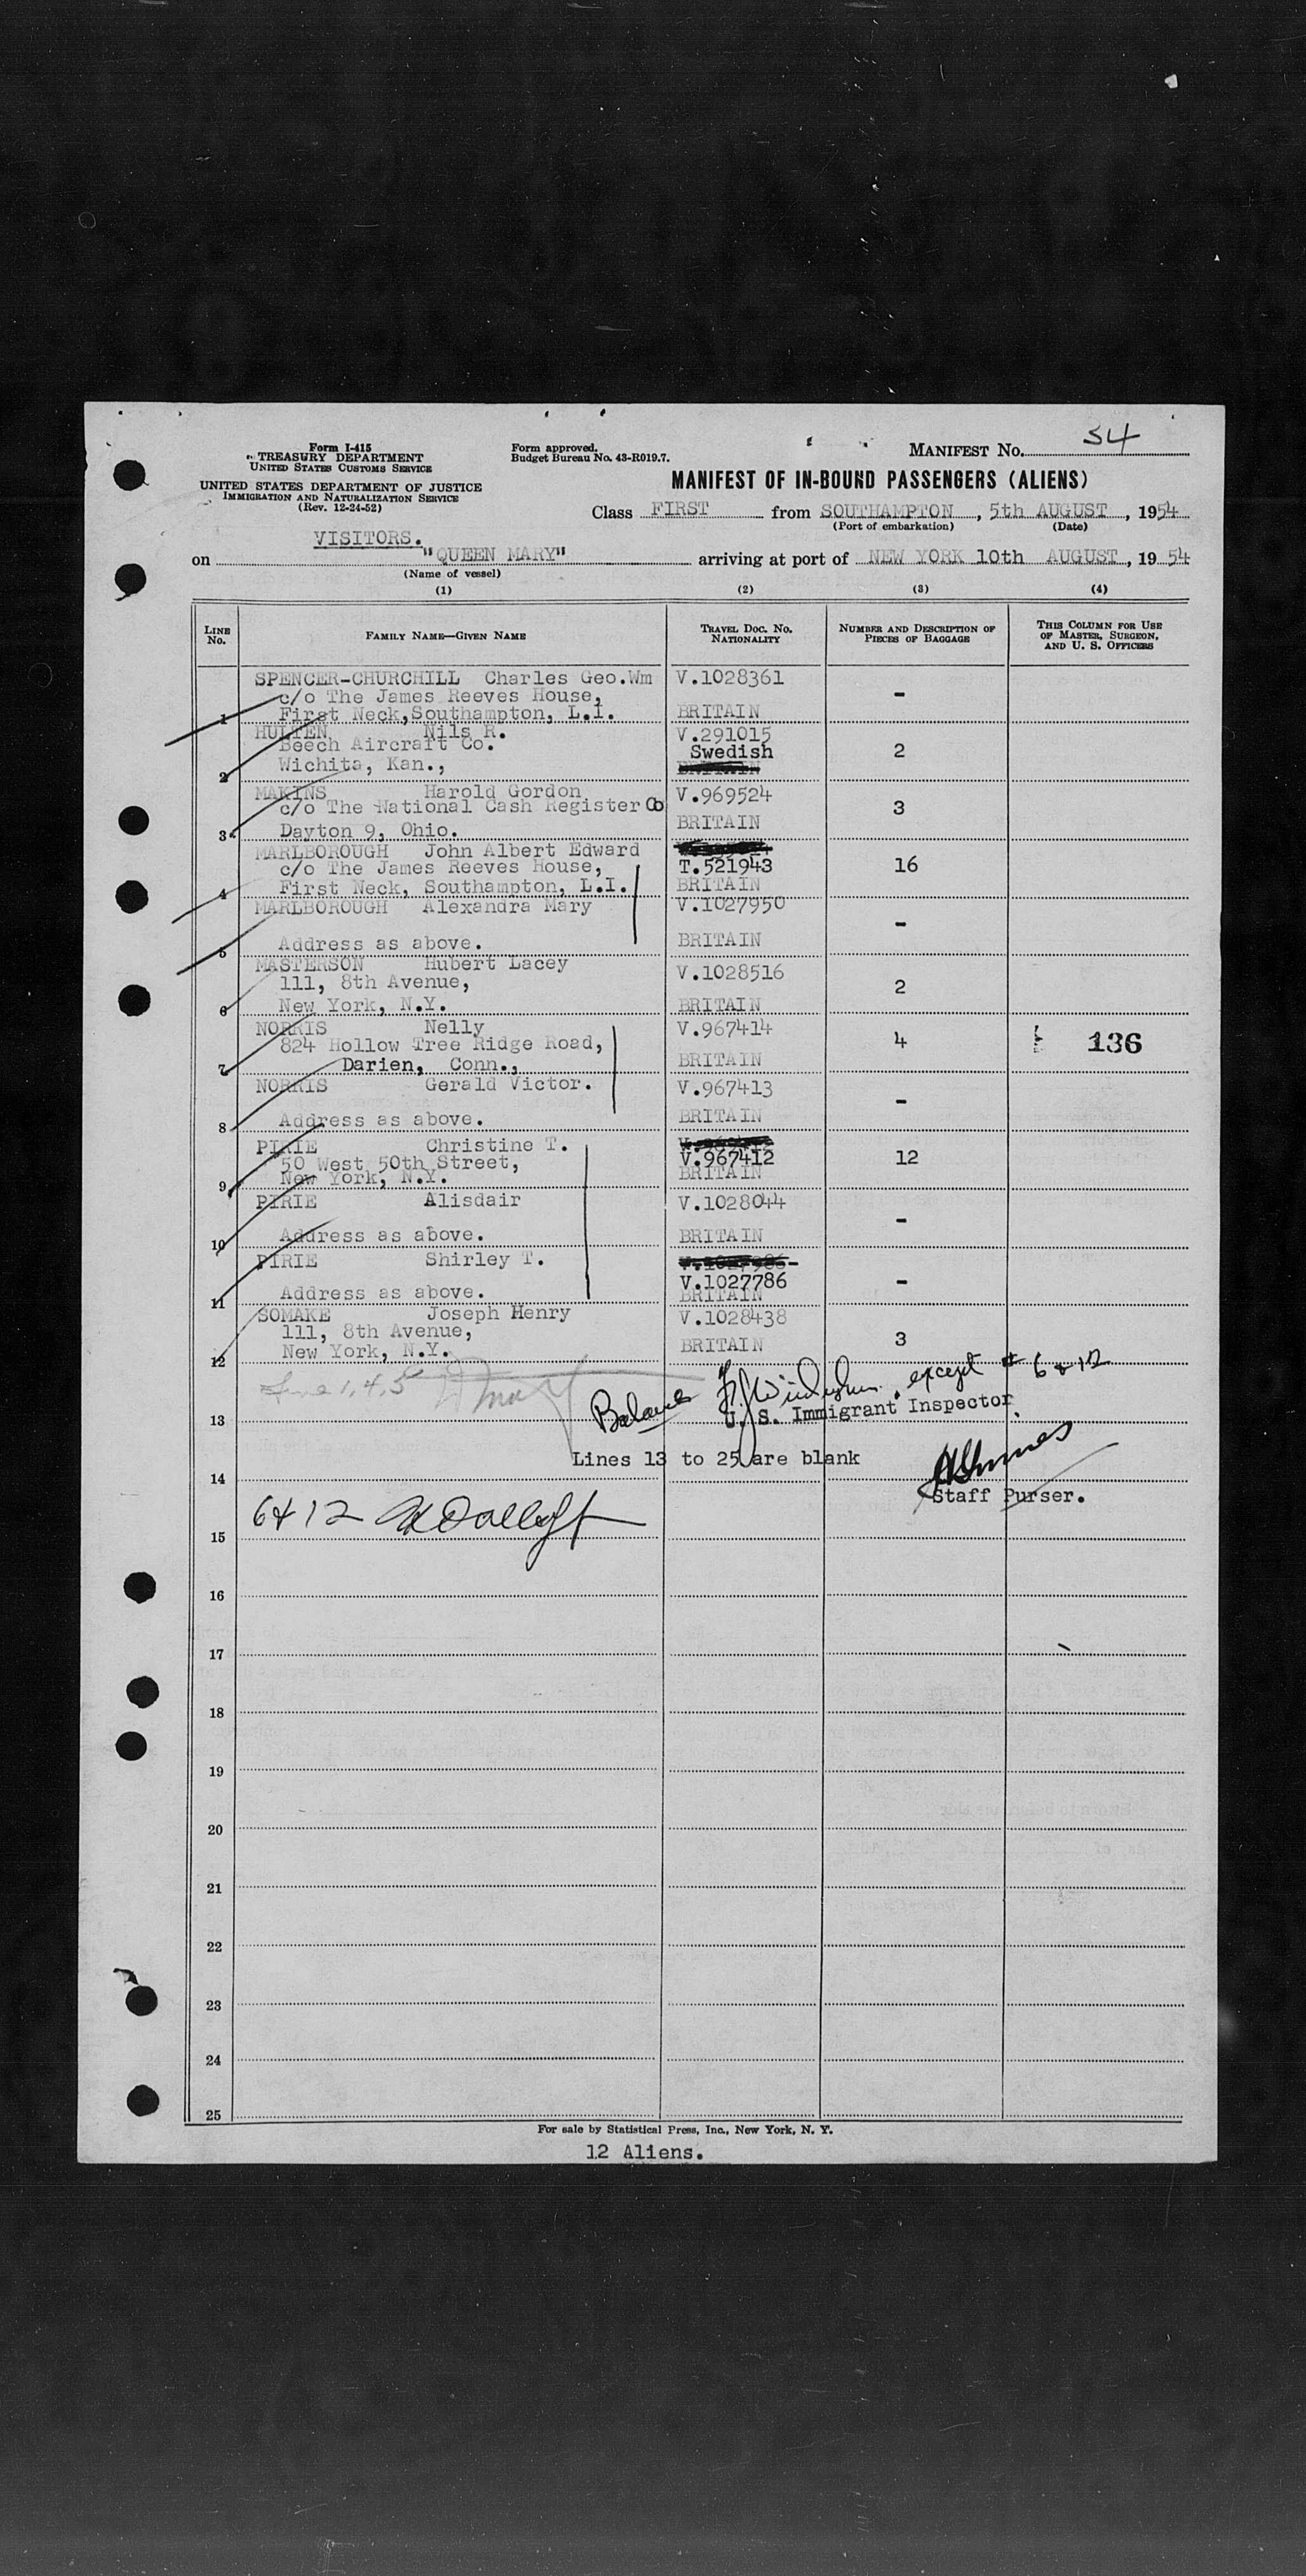 Form I-415
TREASURY DEPARTMENT
UNITED STATES CUSTOMS SERVICE
UNITED STATES DEPARTMENT OF JUSTICE
IMMIGRATION AND NATURALIZATION SERVICE
(Rev. 12-24-52)
Form approved.
Budget Bureau No. 43-R019.7.
MANIFEST NO. 34
MANIFEST OF IN-BOUND PASSENGERS (ALIENS)
Class FIRST from SOUTHAMPTON, 5th AUGUST, 1954
(Port of embarkation) (Date)
VISITORS.
on "QUEEN MARY" arriving at port of NEW YORK 10th AUGUST, 1954
(Name of vessel)
(1) (2) (3) (4)
LINE No. FAMILY NAME—GIVEN NAME TRAVEL DOC. NO. NATIONALITY NUMBER AND DESCRIPTION OF PIECES OF BAGGAGE THIS COLUMN FOR USE OF MASTER, SURGEON, AND U. S. OFFICERS
SPENCER-CHURCHILL Charles Geo.Wm V.1028361
c/o The James Reeves House, -
1 First Neck,Southampton, L.I. BRITAIN
HULTEN Nils R. V.291015
Beech Aircraft Co. Swedish 2
2 Wichita, Kan., BRITAIN
MAKINS Harold Gordon V.969524
c/o The National Cash Register Co 3
3 Dayton 9, Ohio. BRITAIN
MARLBOROUGH John Albert Edward
c/o The James Reeves House, T.521943 16
4 First Neck, Southampton, L.I. BRITAIN
MARLBOROUGH Alexandra Mary V.1027950
-
5 Address as above. BRITAIN
MASTERSON Hubert Lacey V.1028516
111, 8th Avenue, 2
6 New York, N.Y. BRITAIN
NORRIS Nelly V.967414
824 Hollow Tree Ridge Road, 4 136
7 Darien, Conn., BRITAIN
NORRIS Gerald Victor. V.967413
-
8 Address as above. BRITAIN
PIRIE Christine T.
50 West 50th Street, V.967412 12
9 New York, N.Y. BRITAIN
PIRIE Alisdair V.1028044
-
10 Address as above. BRITAIN
PIRIE Shirley T.
V.1027786 -
11 Address as above. BRITAIN
SOMAKE Joseph Henry V.1028438
111, 8th Avenue, 3
12 New York, N.Y. BRITAIN
Line 1, 4, 5
Balance except # 6 & 12
13 U. S. Immigrant Inspector.
Lines 13 to 25 are blank
14
Staff Purser.
6 & 12
15
16
17
18
19
20
21
22
23
24
25
For sale by Statistical Press, Inc., New York, N. Y.
12 Aliens.